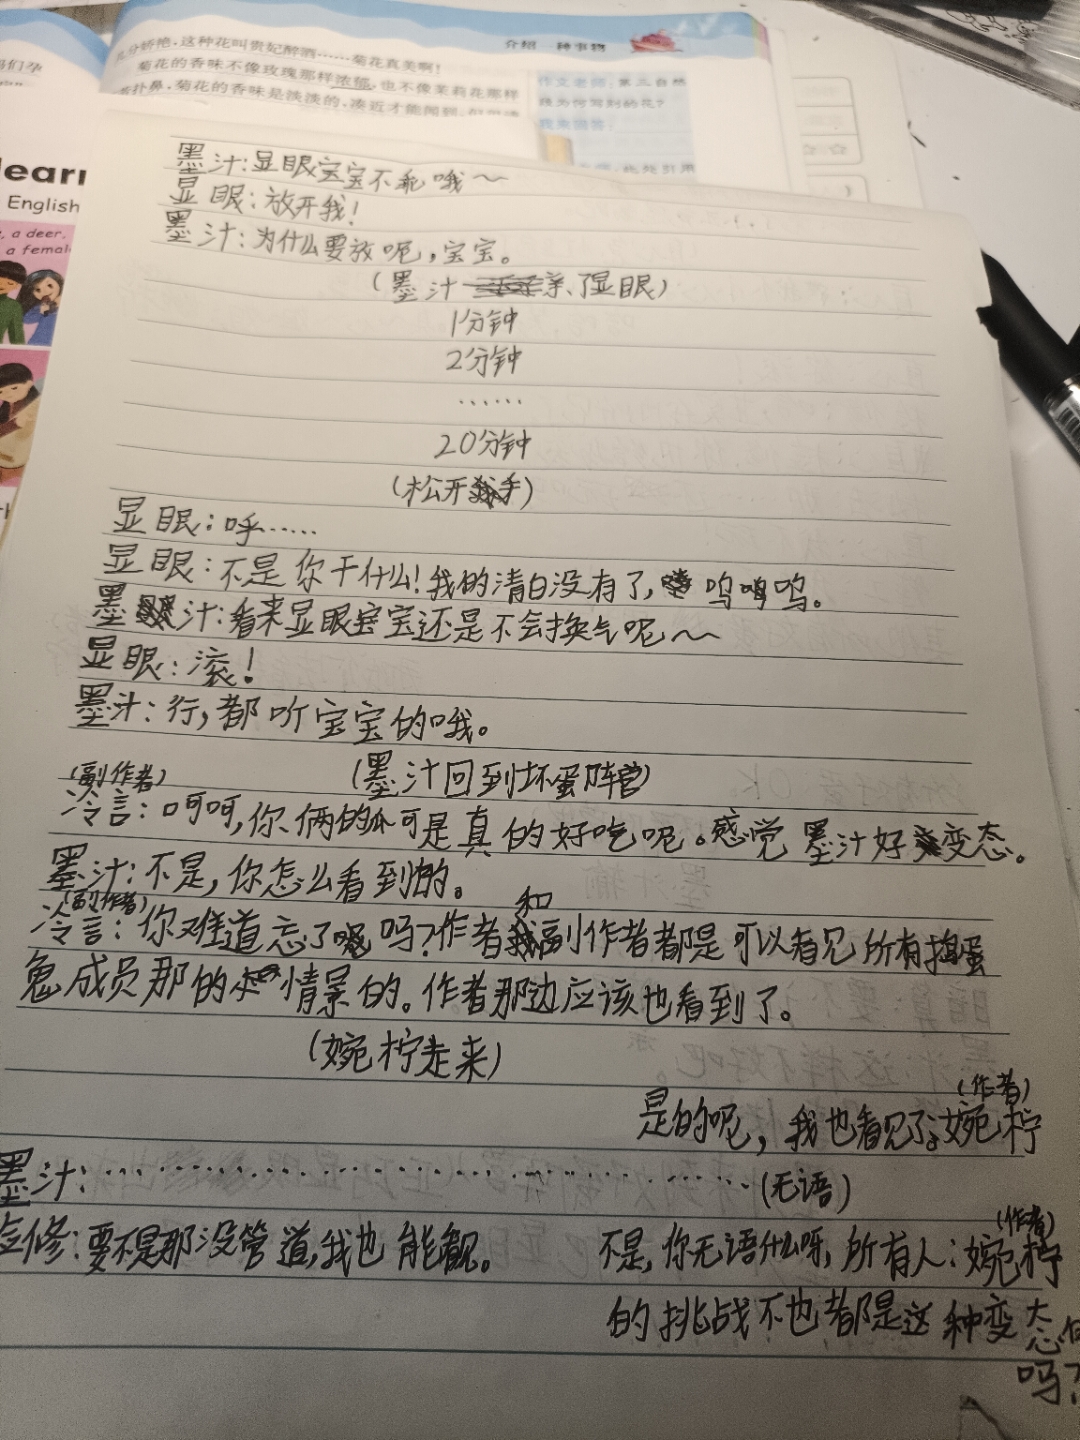 介绍一种事物
分娇艳，这种花叫贵妃醉酒……菊花真美啊！
菊花的香味不像玫瑰那样浓郁，也不像茉莉花那样
扑鼻，菊花的香味是淡淡的，凑近才能闻到
作文老师：第三自然
段为何写别的花？
我来回答：
们孕
learn
English
, a deer.
a female
墨汁：显眼宝宝不乖哦～
显眼：放开我！
墨汁：为什么要放呢，宝宝。
（墨汁亲了显眼）
1分钟
2分钟
……
20分钟
（松开手）
显眼：呼……
显眼：不是你干什么！我的清白没有了，呜呜呜。
墨汁：看来显眼宝宝还是不会换气呢～
显眼：滚！
墨汁：行，都听宝宝的哦。
（墨汁回到坏蛋阵营）
（副作者）
冷言：呵呵，你俩的瓜可是真的好吃呢。感觉墨汁好变态。
墨汁：不是，你怎么看到的。
（副作者）
冷言：你难道忘了吗？作者和副作者都是可以看见所有捣蛋
鬼成员那的情景的。作者那边应该也看到了。
（婉柠走来）
（作者）
是的呢，我也看见了。婉柠
墨汁：……………………（无语）
修：要不是那没管道，我也能看见。
（作者）
不是，你无语什么呀，所有人：婉柠
的挑战不也都是这种变态
吗？